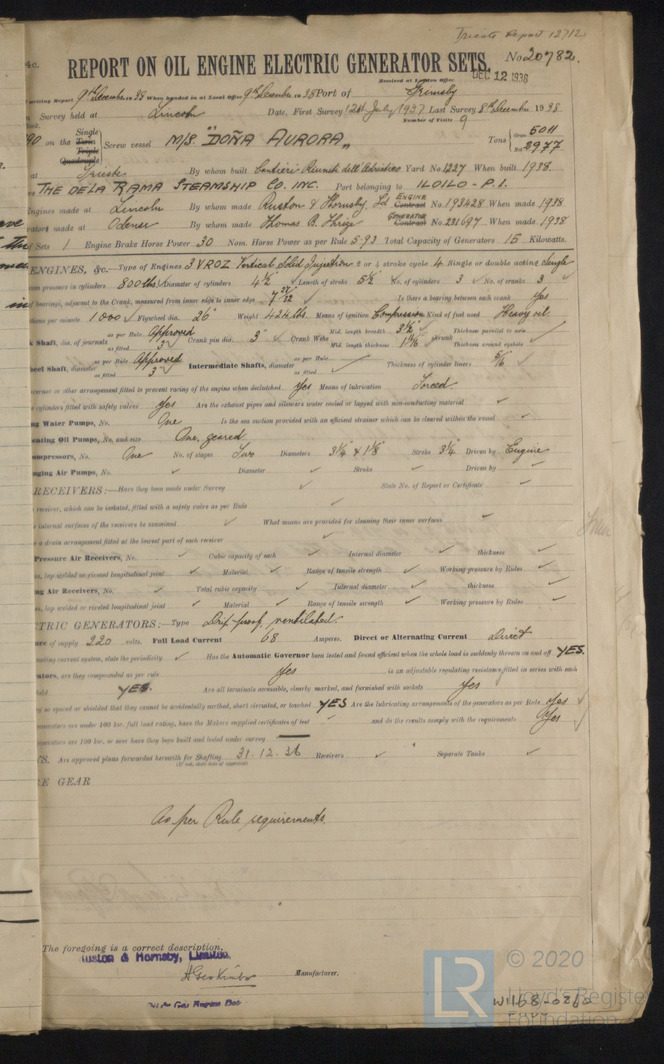 Trieste Report 12712
&c. REPORT ON OIL ENGINE ELECTRIC GENERATOR SETS. No 20782.
Received at London Office DEC 12 1938
writing Report 9th December 1938 When handed in at Local Office 9th December 1938 Port of Grimsby
Survey held at Lincoln Date, First Survey 12th July 1937 Last Survey 8th December 1938
Number of Visits 9
90 on the Single Twin Triple Quadruple Screw vessel M/S "DOÑA AURORA" Tons Gross 5011 Net 2977
at Trieste By whom built Cantieri Riuniti dell' Adriatico Yard No. 1227 When built 1938.
THE DE LA RAMA STEAMSHIP CO. INC. Port belonging to ILOILO - P.I.
Engines made at Lincoln By whom made Ruston & Hornsby, Ld ENGINE Contract No. 193428 When made 1938
made at Odense By whom made Thomas B. Thrige GENERATOR Contract No. 231697 When made 1938
of Sets 1 Engine Brake Horse Power 30 Nom. Horse Power as per Rule 5.93 Total Capacity of Generators 15 Kilowatts.
ENGINES, &c.—Type of Engines 3 VROZ Vertical Solid Injection 2 or 4 stroke cycle 4 Single or double acting Single
pressure in cylinders 800 lbs Diameter of cylinders 4½" Length of stroke 5½" No. of cylinders 3 No. of cranks 3
of bearings, adjacent to the Crank, measured from inner edge to inner edge 7 Is there a bearing between each crank Yes
per minute 1000 Flywheel dia. 26" Weight 424 lbs. Means of ignition Compression Kind of fuel used Heavy oil.
Shaft, dia. of journals as per Rule Approved as fitted 3" Crank pin dia. 3" Crank Webs Mid. length breadth 3½" Mid. length thickness shrunk Thickness parallel to axis Thickness around eyehole
wheel Shaft, diameter as per Rule Approved as fitted 3" Intermediate Shafts, diameter as per Rule as fitted Thickness of cylinder liners 5/16
governor or other arrangement fitted to prevent racing of the engine when declutched Yes Means of lubrication Forced.
cylinders fitted with safety valves Yes Are the exhaust pipes and silencers water cooled or lagged with non-conducting material ✓
Water Pumps, No. One Is the sea suction provided with an efficient strainer which can be cleared within the vessel ✓
Oil Pumps, No. and size One, geared
ompressors, No. One No. of stages Two Diameters 3¼" & 1⅛" Stroke 3¼" Driven by Engine
Air Pumps, No. ✓ Diameter ✓ Stroke ✓ Driven by ✓
RECEIVERS:—Have they been made under Survey ✓ State No. of Report or Certificate ✓
receiver, which can be isolated, fitted with a safety valve as per Rule ✓
internal surfaces of the receivers be examined ✓ What means are provided for cleaning their inner surfaces ✓
a drain arrangement fitted at the lowest part of each receiver ✓
Pressure Air Receivers, No. ✓ Cubic capacity of each ✓ Internal diameter ✓ thickness ✓
lap welded or riveted longitudinal joint ✓ Material ✓ Range of tensile strength ✓ Working pressure by Rules ✓
Air Receivers, No. ✓ Total cubic capacity ✓ Internal diameter ✓ thickness ✓
lap welded or riveted longitudinal joint ✓ Material ✓ Range of tensile strength ✓ Working pressure by Rules ✓
TRIC GENERATORS:—Type Drip-proof, ventilated.
of supply 220 volts. Full Load Current 68 Amperes. Direct or Alternating Current Direct
current system, state the periodicity ✓ Has the Automatic Governor been tested and found efficient when the whole load is suddenly thrown on and off YES.
are they compounded as per rule Yes is an adjustable regulating resistance fitted in series with each
field YES. Are all terminals accessible, clearly marked, and furnished with sockets Yes
so spaced or shielded that they cannot be accidentally earthed, short circuited, or touched YES Are the lubricating arrangements of the generators as per Rule Yes
generators are under 100 kw. full load rating, have the Makers supplied certificates of test ✓ and do the results comply with the requirements Yes
generators are 100 kw. or over have they been built and tested under survey —
Are approved plans forwarded herewith for Shafting 31.12.36 Receivers ✓ Separate Tanks ✓
(If not, state date of approval)
E GEAR
As per Rule requirements.
The foregoing is a correct description,
uston & Hornsby, Limited.
Manufacturer.
Gas Engine Dept
© 2020
LR
Lloyd's Register
Foundation
W1168-0260